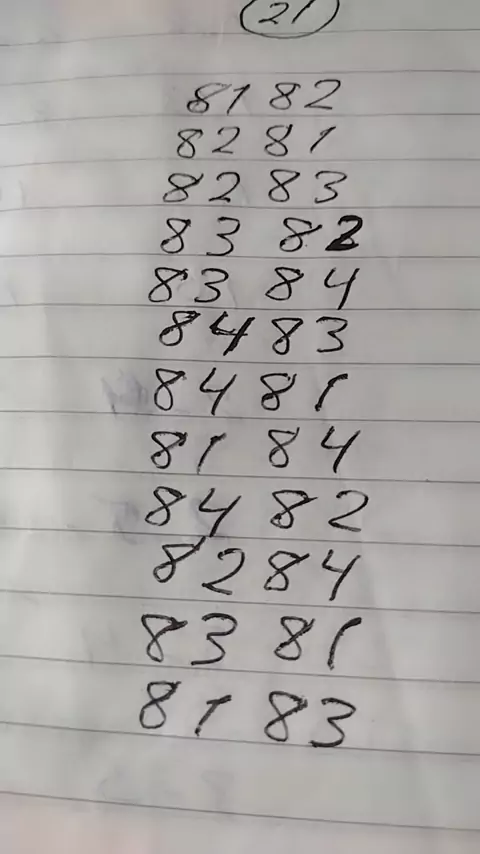 21
81 82
82 81
82 83
83 82
83 84
84 83
84 81
81 84
84 82
82 84
83 81
81 83